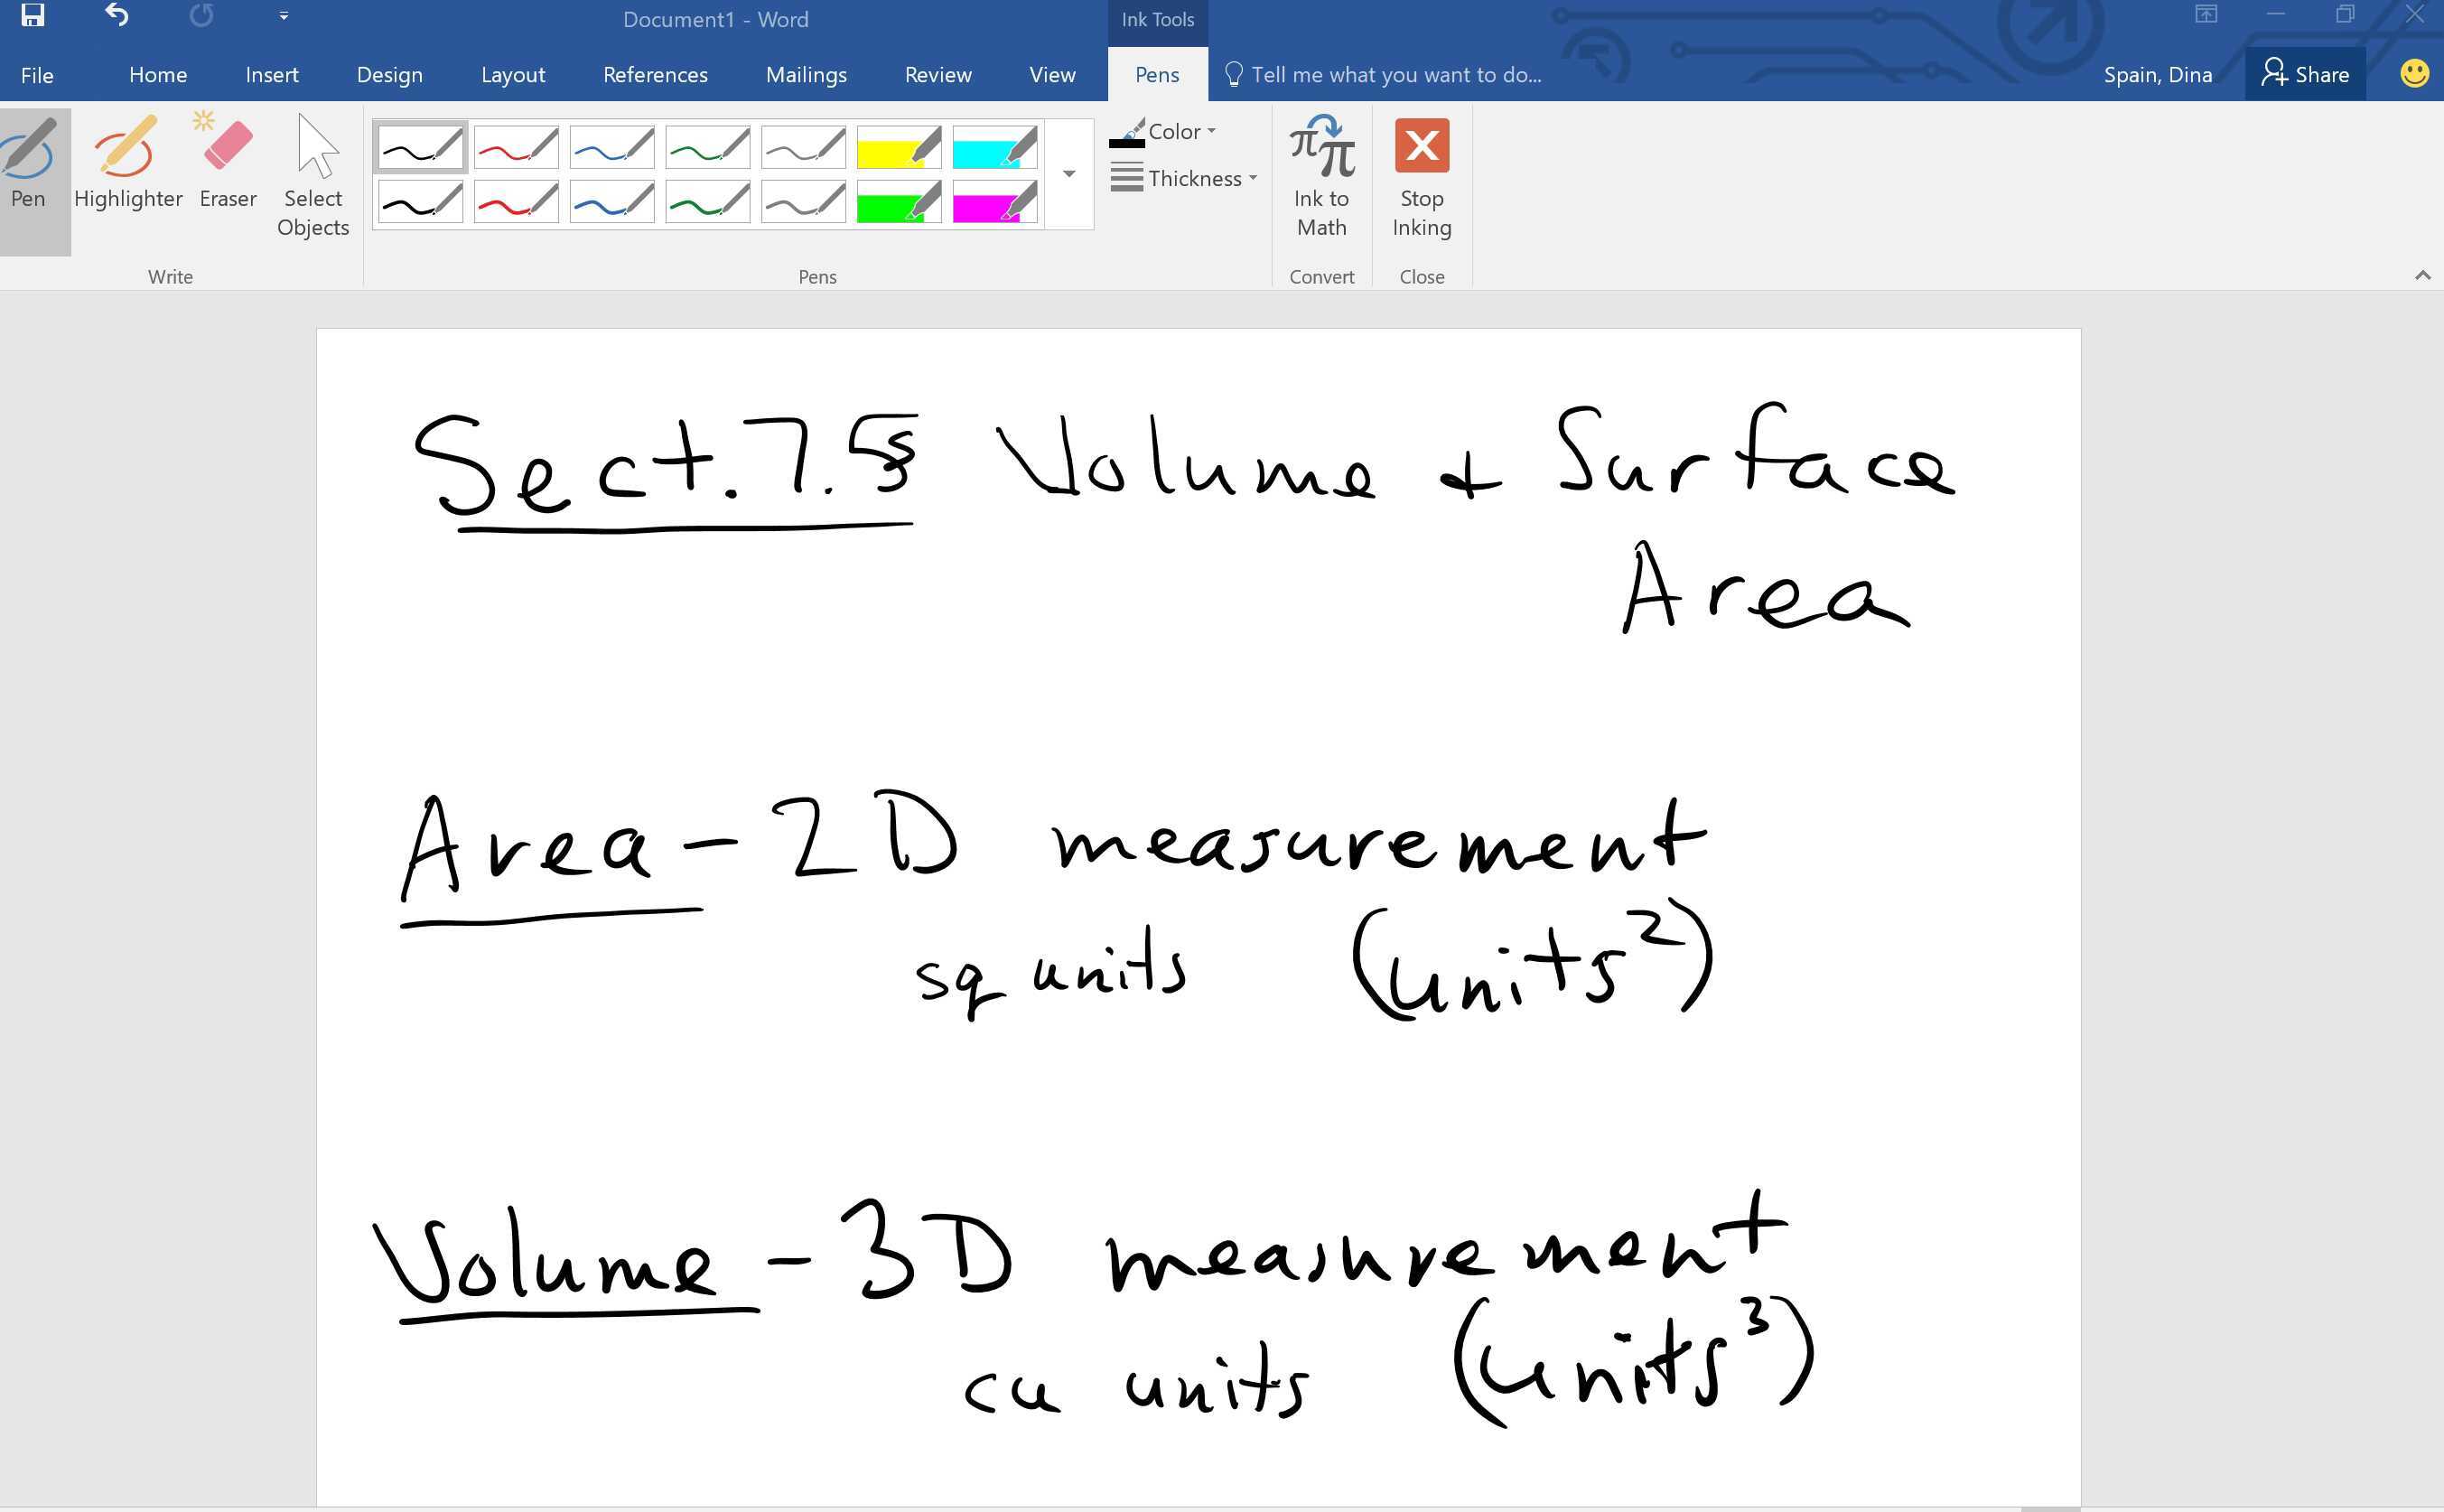 Document1 - Word
Ink Tools
File Home Insert Design Layout References Mailings Review View Pens Tell me what you want to do... Spain, Dina Share
Pen Highlighter Eraser Select Objects
Color
Thickness
Ink to Math
Stop Inking
Write Pens Convert Close
Sect. 7.5 Volume + Surface
Area
Area - 2D measurement
sq units (units²)
Volume - 3D measurement
cu units (units³)